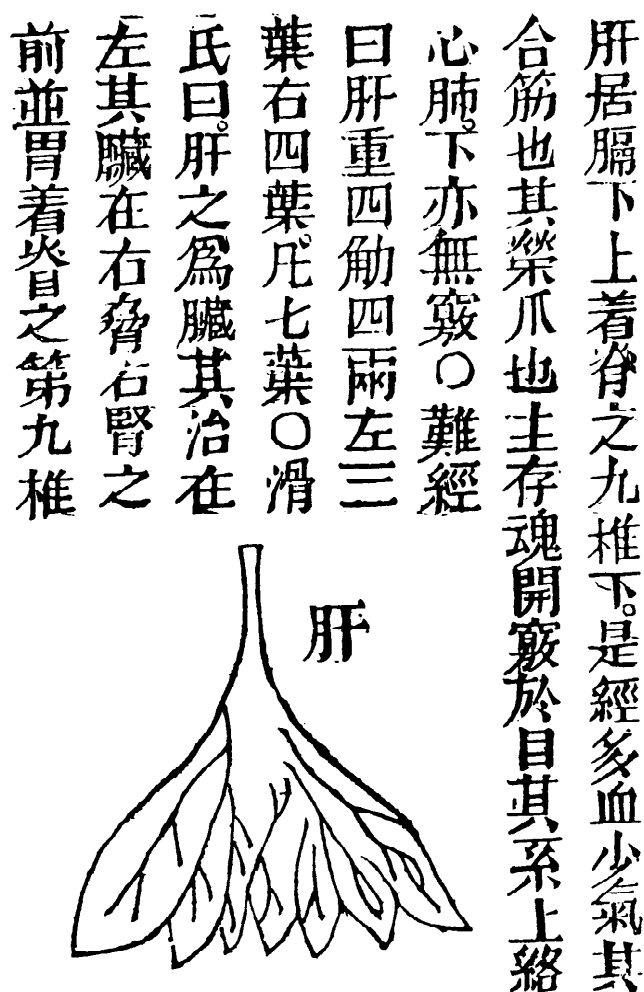 肝居膈下上着脊之九椎下。是經多血少氣其
合筋也其榮爪也主存魂開竅於目其系上絡
心肺。下亦無竅〇難經
曰肝重四觔四兩左三
葉右四葉。凡七葉〇滑
氏曰。肝之爲臟其治在
左其臟在右脅右腎之
前並胃着脊之第九椎
肝